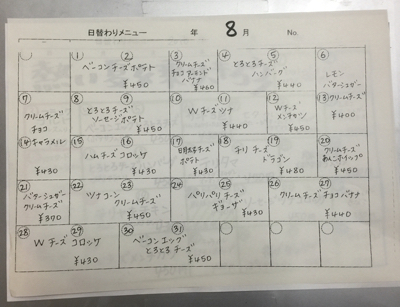 日替わりメニュー 年 8月 No.
① ② ベーコンチーズポテト ¥450
③ クリームチーズ
チョコアーモンド
バナナ ¥460
④ ⑤ とろとろチーズ
ハンバーグ ¥440
⑥ レモン
バターシュガー
⑦ クリームチーズ
チョコ
⑧ ⑨ とろとろチーズ
ソーセージポテト
¥450
⑩ ⑪ Wチーズツナ
¥440
⑫ Wチーズ
メンチカツ
¥450
⑬ クリームチーズ
¥400
⑭ キャラメル
¥430
⑮ ⑯ ハムチーズコロッケ
¥430
⑰ 明太チーズ
ポテト
¥430
⑱ ⑲ チリチーズ
ドラゴン
¥480
⑳ クリームチーズ
あんこホイップ
¥450
㉑ バターシュガー
クリームチーズ
¥370
㉒ ㉓ ツナコーン
クリームチーズ
¥450
㉔ ㉕ パリパリチーズ
ギョーザ
¥430
㉖ ㉗ クリームチーズチョコバナナ
¥440
㉘ ㉙ Wチーズコロッケ
¥430
㉚ ㉛ ベーコンエッグ
とろとろチーズ
¥450